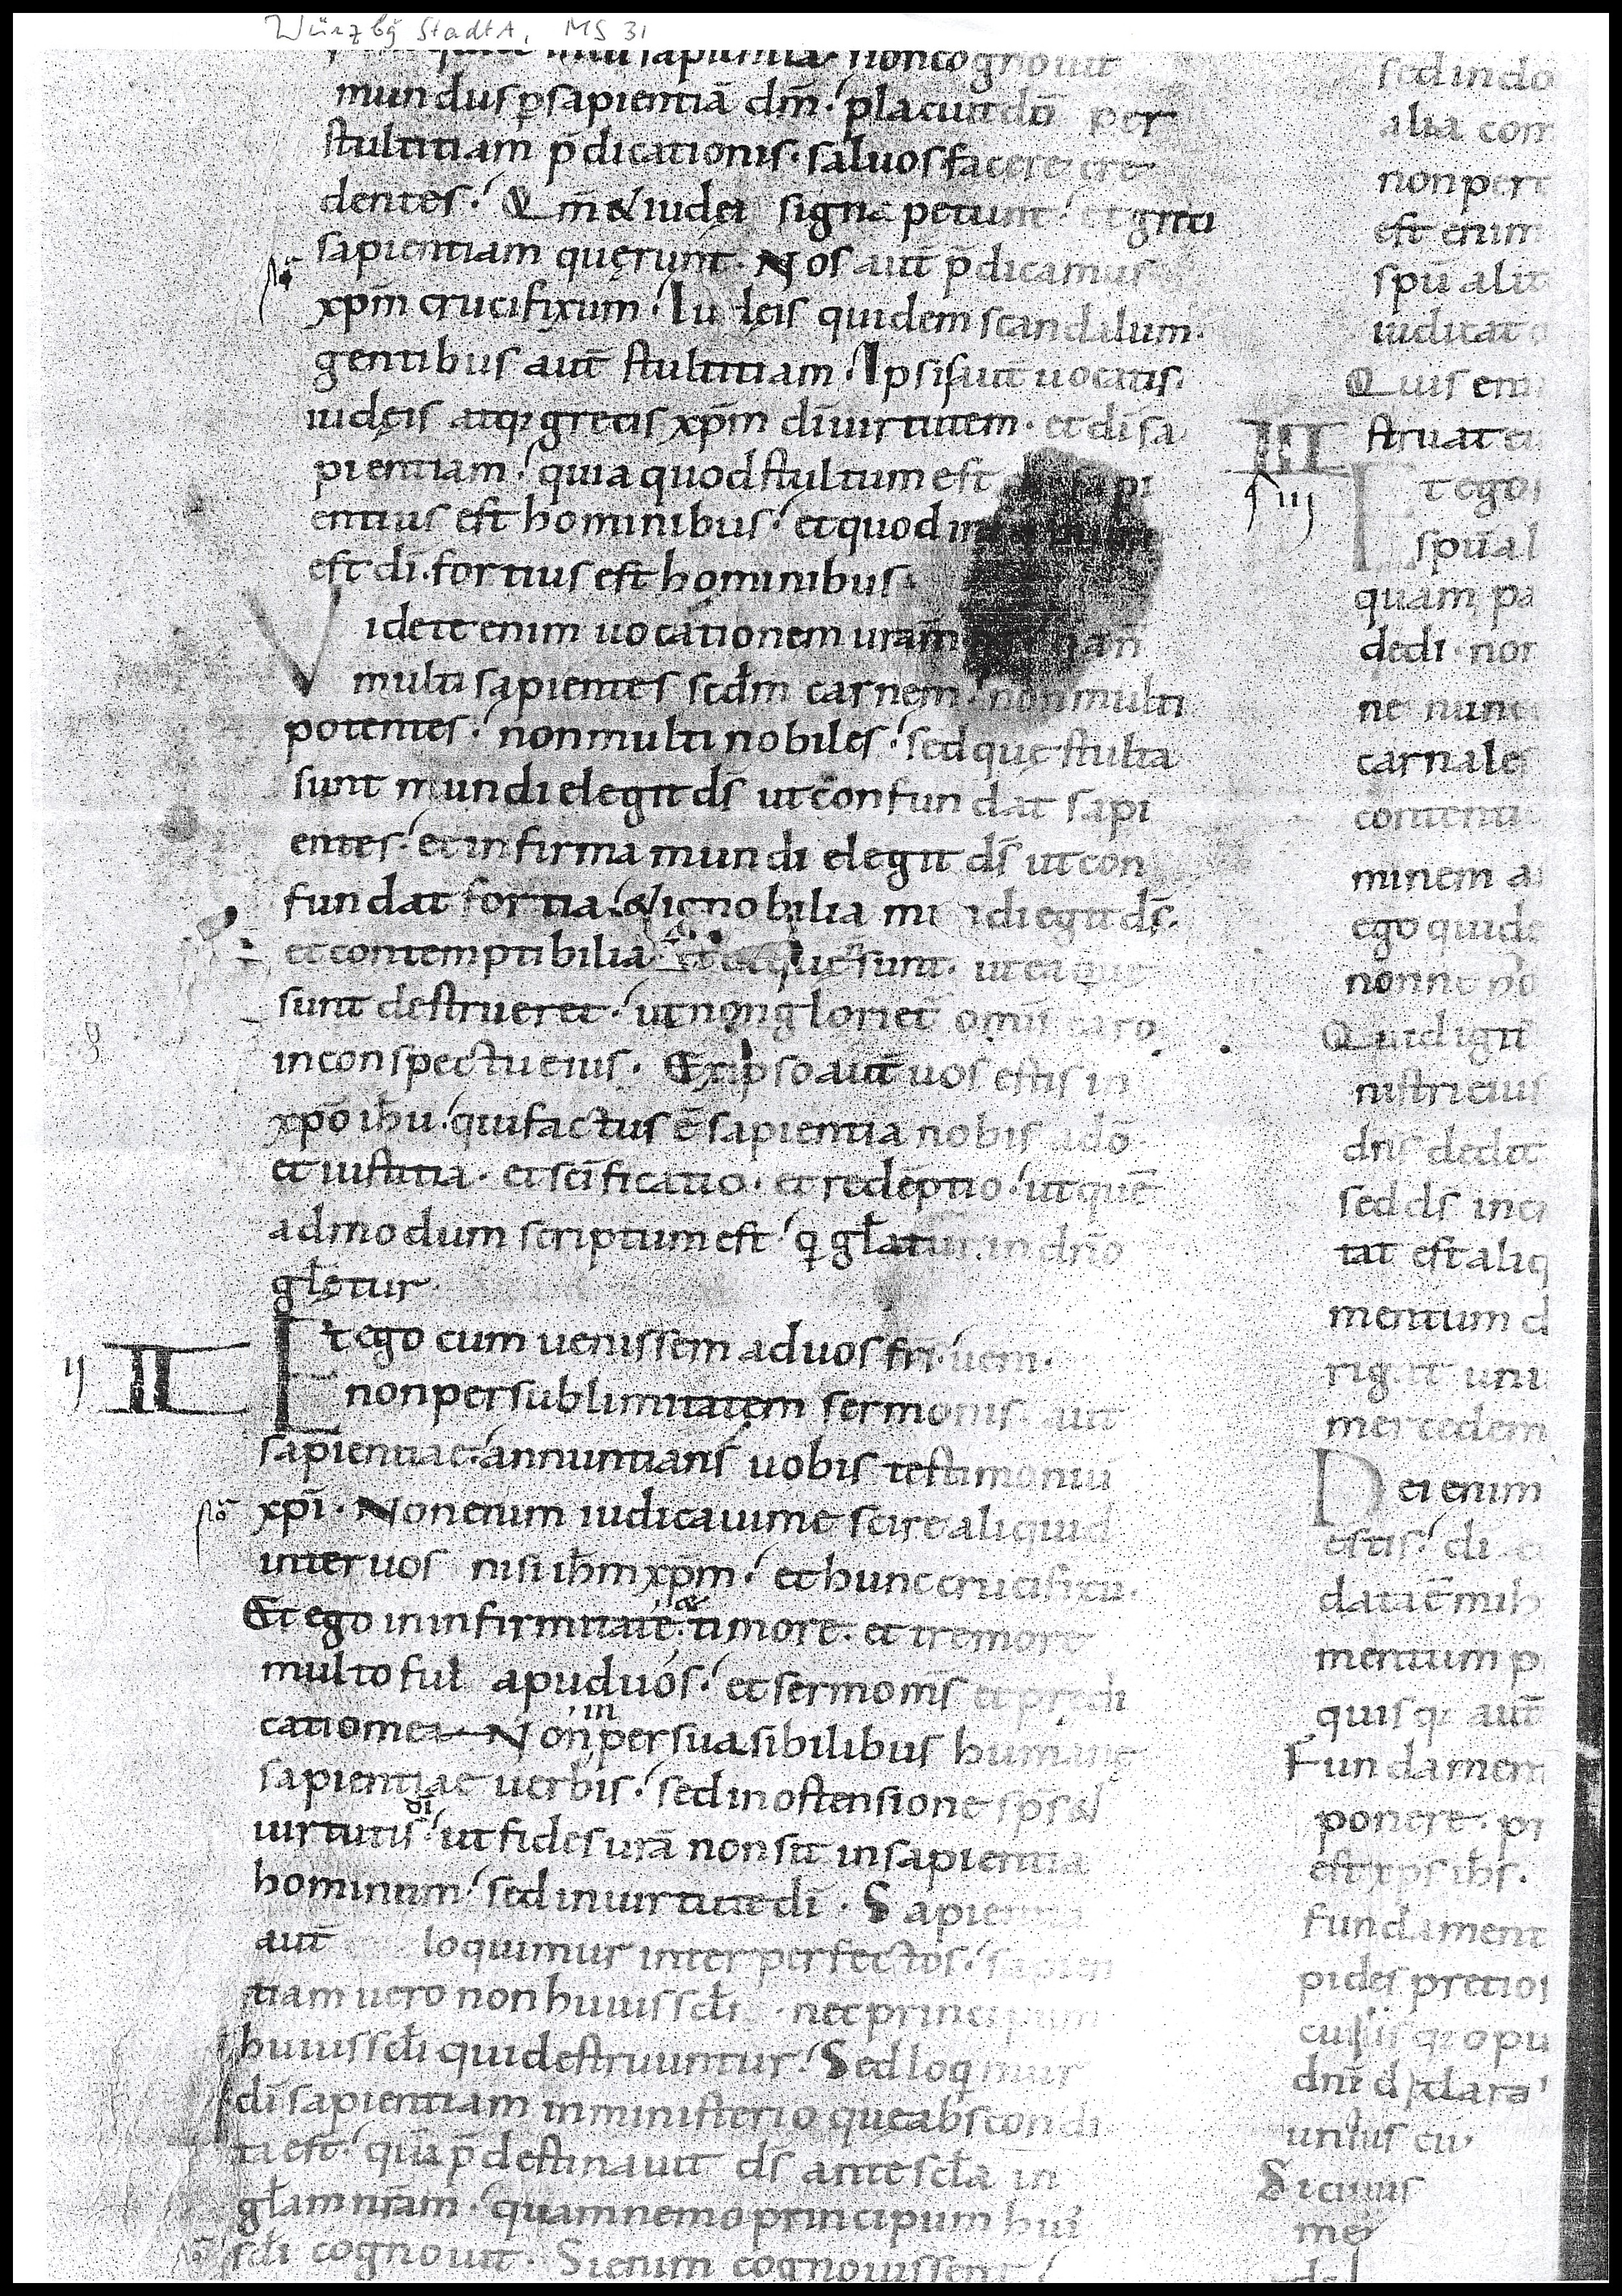 Würzbg StadtA, MS 31
sapientia noncognouit
mundus p̱sapientiā dm̄. placuit dō per
stultitiam p̄dicationis. saluos facere cre
dentes. Qm̄ & iudei signa petunt. et greci
sapientiam quęrunt. Nos aūt p̄dicamus
xpm̄ crucifixum. Iudęis quidem scandalum.
gentibus aūt stultitiam. Ipsis aūt uocatis.
iudęis atq; grecis xpm̄ dī uirtutem. et dī sa
pientiam. quia quod stultum est sapi
entius est hominibus. et quod
est dī. fortius est hominibus.
Videte enim uocationem urām
multi sapientes scdm̄ carnem. non multi
potentes. non multi nobiles. sed quę stulta
sunt mundi elegit ds̄ ut confundat sapi
entes. et infirma mundi elegit ds̄ ut con
fundat fortia. & ignobilia mundi egit ds̄.
et contemptibilia quę sunt. ut ea que
sunt destrueret. ut non glorietˉ omīs caro
in conspectu eius. Ex ipso aūt uos estis in
xpō ihū. qui factus ē sapientia nobis a dō
et iustitia. et scīficatio. et redēptio. ut quē
admodum scriptum est. q̄ głatur. in dnō
głetur.
ij II Et ego cum uenissem ad uos frī. ueni.
non per sublimitatem sermonis. aut
sapientiae. annuntians uobis testimoniū
xpī. Non enim iudicaui me scire aliquid
inter uos nisi ihm̄ xpm̄. et hunc crucifixū.
Et ego in infirmitate. & timore. et tremore
multo fui apud uos. et sermo ms̄ et predi
catio mea. Non in persuasibilibus humanę
sapientiae uerbis. sed in ostensione sps̄ &
uirtutis dī. ut fides urā non sit in sapientia
hominum. sed in uirtute dī. Sapientia
aūt loquimur inter perfectos. sapien
tiam uero non huius scłi. nec principum
huius scłi. qui destruuntur. Sed loq̄mur
dī sapientiam in ministerio que abscondi
ta est. quā p̄destinauit ds̄ ante scła in
głam nrām. quam nemo principum hui
scłi cognouit. Si enim cognouissent
sed in do
alia com
non pert
est enim
spū alit
iudicat
Quis eni
struat eu
III
iij Et ego
spūal
quam pa
dedi. non
ne nunc
carnales
contenti
minem a
ego quide
nonne ho
Quid igit̄
nistri eius
dns̄ dedit
sed ds̄ incr
tat est aliq
mentum d
rigat unu
mercedem
Dei enim
estis. di
data ē mih
mentum p
quisq; aūt
Fundamen
ponere. pr
est xps̄ ihs̄.
fundament
pides pretios
cuiusq; opu
dnī declara
uniuscui
Si cuius